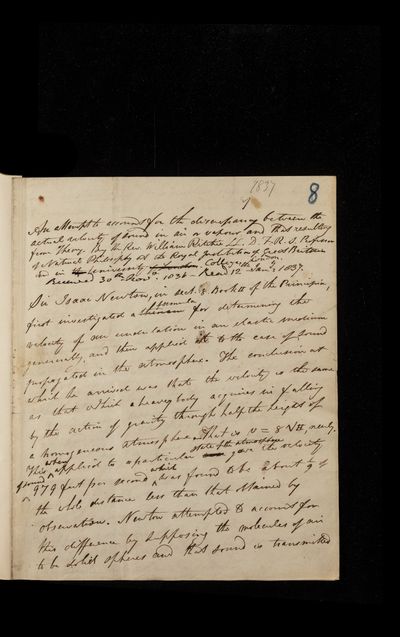 1837
8
An attempt to account for the discrepancy between the
actual velocity of sound in air or vapour and that resulting
from Theory. By the Rev. William Ritchie L.L.D. F.R.S. Professor
of Natural Philosophy at the Royal Institution of Great Britain
and in University College London.
Received 30th Nov. 1836 - Read 12 Jany 1837.
Sir Isaac Newton, in sect. 8 Book II of the Principia,
first investigated a formula for determining the
velocity of an undulation in an elastic medium
generally, and then applied it to the case of sound
propagated in the atmosphere. The conclusion at
which he arrived was that the velocity is the same
as that which a heavy body acquires in falling
by the action of gravity through half the height of
a homogeneous atmosphere. That is v = 8√H, nearly,
This when applied to a particular state of the atmosphere gave the velocity
of sound 979 feet per second, which was found to be about 1/7 of
the whole distance less than that obtained by
observation. Newton attempted to account for
this difference by supposing the molecules of air
to be solid spheres and that sound is transmitted